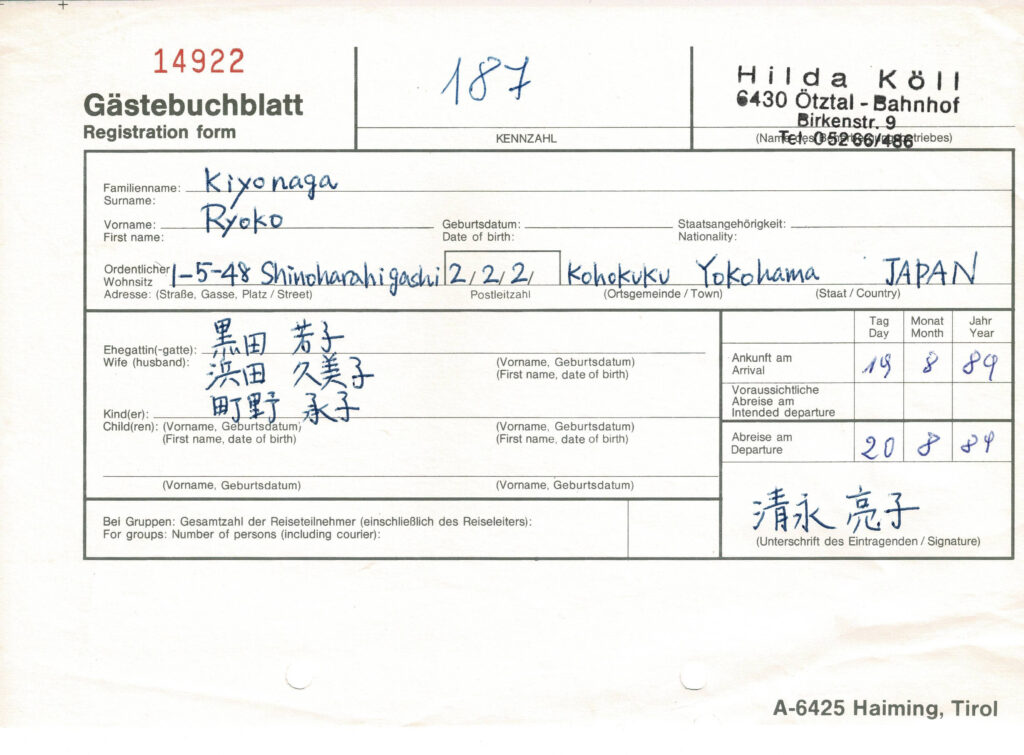 14922
Gästebuchblatt
Registration form
187
KENNZAHL
Hilda Köll
6430 Ötztal - Bahnhof
Birkenstr. 9
Tel. 05266/486
Familienname: Kiyonaga
Surname:
Vorname: Ryoko Geburtsdatum: Staatsangehörigkeit:
First name: Date of birth: Nationality:
Ordentlicher Wohnsitz 1-5-48 Shinoharahigashi 2/2/2/ Kohokuku Yokohama JAPAN
Adresse: (Straße, Gasse, Platz / Street) Postleitzahl (Ortsgemeinde / Town) (Staat / Country)
黒田 若子
Ehegattin(-gatte):
Wife (husband): (Vorname, Geburtsdatum)
(First name, date of birth)
浜田 久美子
町野 承子
Kind(er):
Child(ren): (Vorname, Geburtsdatum) (Vorname, Geburtsdatum)
(First name, date of birth) (First name, date of birth)
(Vorname, Geburtsdatum) (Vorname, Geburtsdatum)
Bei Gruppen: Gesamtzahl der Reiseteilnehmer (einschließlich des Reiseleiters):
For groups: Number of persons (including courier):
Tag Monat Jahr
Day Month Year
Ankunft am
Arrival 19 8 89
Voraussichtliche
Abreise am
Intended departure
Abreise am
Departure 20 8 89
清永 亮子
(Unterschrift des Eintragenden / Signature)
A-6425 Haiming, Tirol